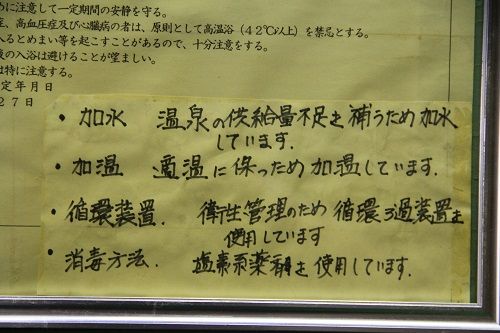 めに注意して一定期間の安静を守る。
症、高血圧症及び心臓病の者は、原則として高温浴（42℃以上）を禁忌とする。
入るとめまい等を起こすことがあるので、十分注意をする。
後の入浴は避けることが望ましい。
は特に注意する。
定年月日
27日
・加水　温泉の供給量不足を補うため加水
しています.
・加温　適温に保っため加温しています.
・循環装置.　衛生管理のため循環ろ過装置を
使用しています
・消毒方法.　塩素系薬剤を使用しています.